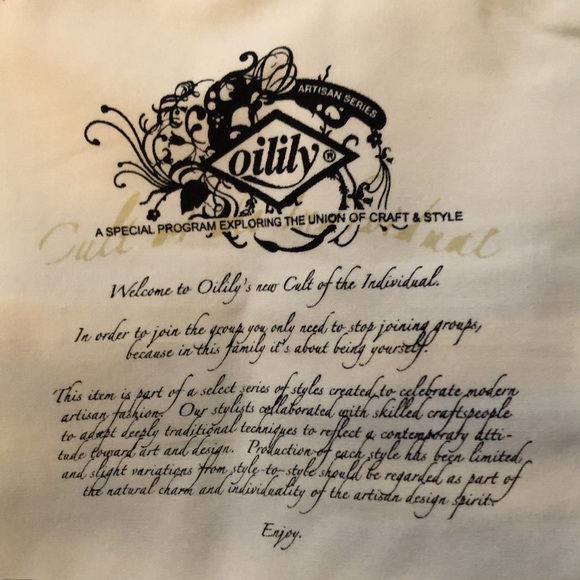 ARTISAN SERIES
oilily®
A SPECIAL PROGRAM EXPLORING THE UNION OF CRAFT & STYLE
Cult of the Individual
Welcome to Oilily's new Cult of the Individual.
In order to join the group you only need to stop joining groups,
because in this family it's about being yourself.
This item is part of a select series of styles created to celebrate modern
artisan fashion. Our stylists collaborated with skilled craftspeople
to adapt deeply traditional techniques to reflect a contemporary atti-
tude toward art and design. Production of each style has been limited,
and slight variations from style-to-style should be regarded as part of
the natural charm and individuality of the artisan design spirit.
Enjoy.